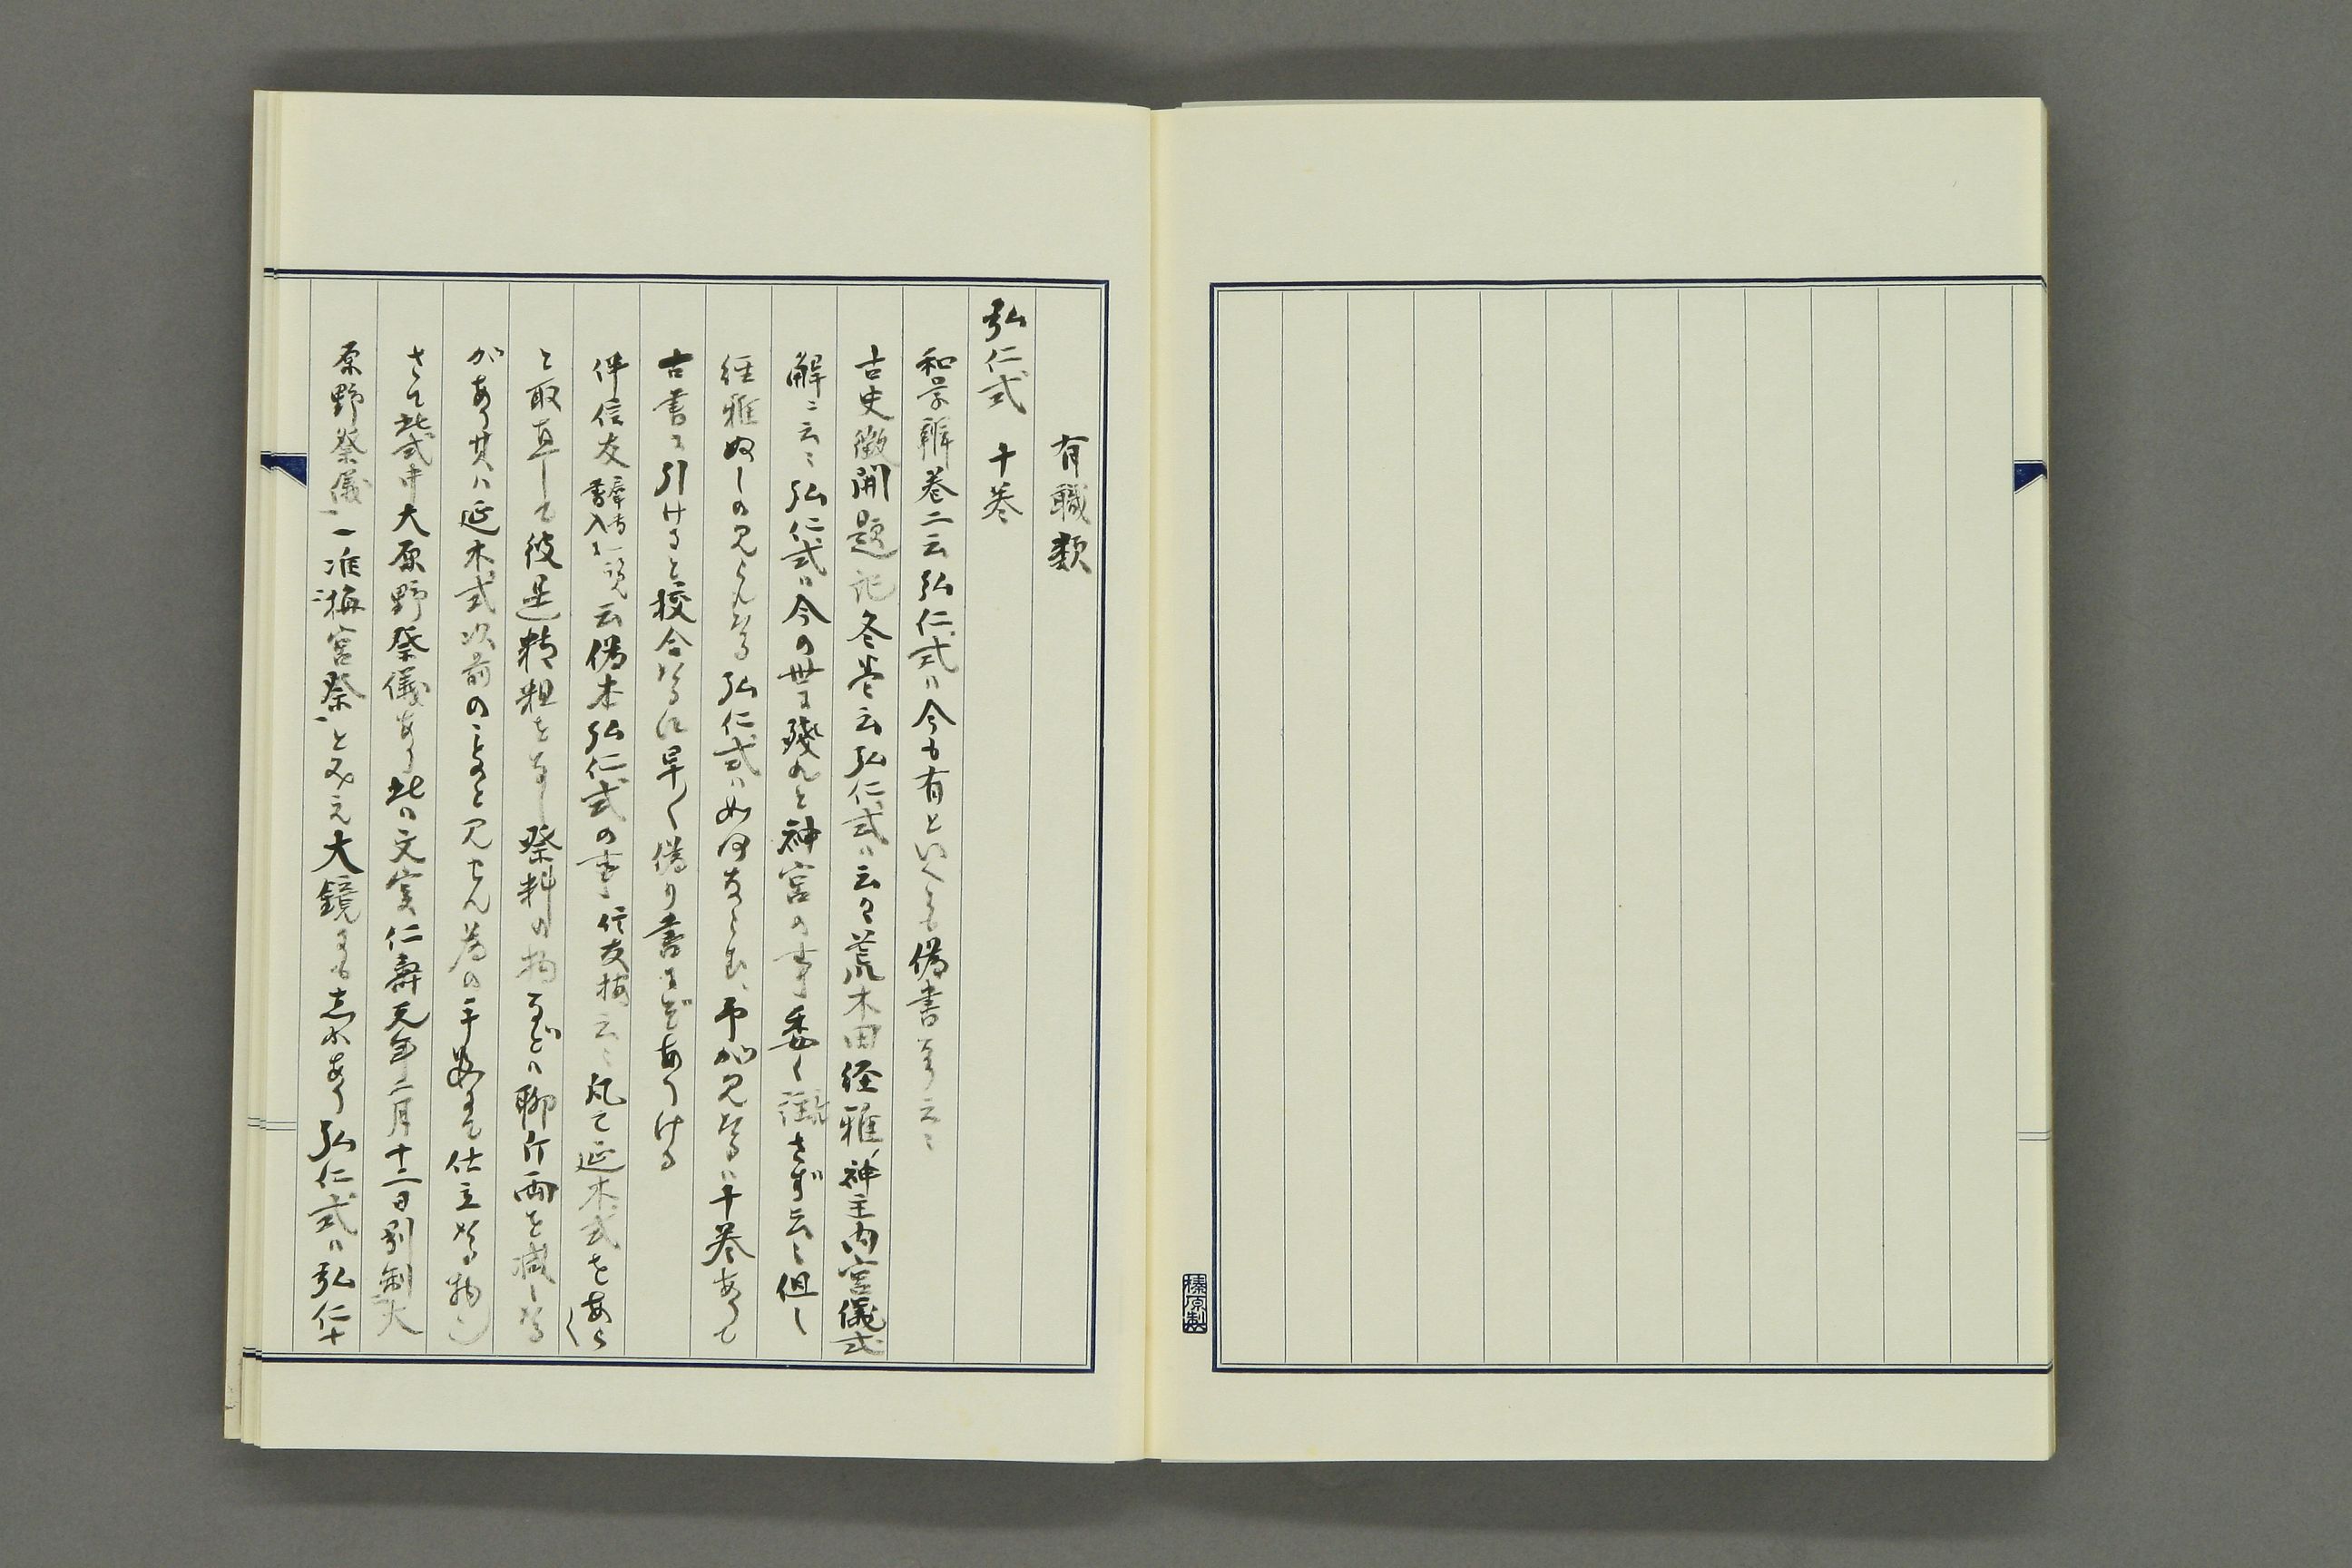 有職類
弘仁式 十巻
和学辨巻二云弘仁式ハ今も有といへとも偽書なり云〻
古史徴開題記冬巻云弘仁式ハ云々荒木田経雅神主内宮儀式
解ニ云〻弘仁式ハ今の世に残れと神宮の事委く註さず云〻但し
経雅ぬしの見られたる弘仁式ハ如何なりけむ予が見たるハ十巻ありて
古書に引けると校合たるに早く偽り書にぞありける
伴信友書入云偽本弘仁式の事信友按云〻凡て延木式をあら〱
と取直して彼是精粗をなし祭料の物などハ聊斤両を減したる
があり其ハ延木式以前のことゝ見せん為の手段にて仕立たる物也
さて此式中大原野祭儀あり此ハ文実仁寿元年二月十二日別制大
原野祭儀一准梅宮祭とみえ大鏡にも志かあり弘仁式ハ弘仁十
榛原製